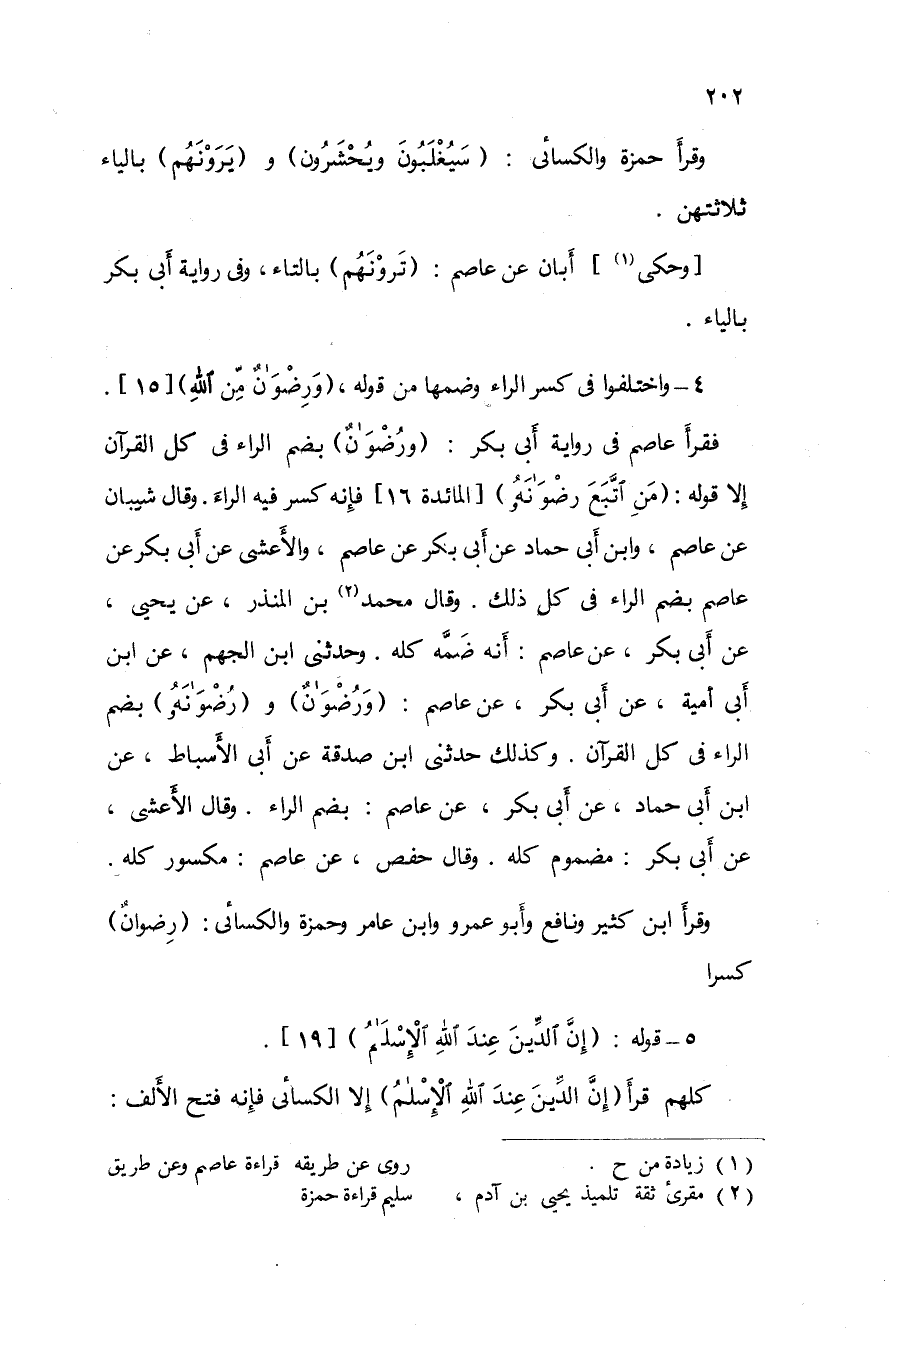 ٢٠٢
وقرأ حمزة والكسائى : ( سَيُغْلَبُونَ ويُحْشَرُون) و (يَرَوْنَهُم) بالياء
ثلاثتهن .
[وحكى(١) ] أبان عن عاصم : (تَروْنَهُم) بالتاء ، وفى رواية أبى بكر
بالياء .
٤ ــ واختلفوا فى كسر الراء وضمها من قوله ، (وَرِضْوَٰنٌ مِّن ٱللهِ) [١٥] .
فقرأ عاصم فى رواية أبى بكر : (ورُضْوَٰنٌ) بضم الراء فى كل القرآن
إلا قوله : (مَنِ ٱتَّبَعَ رِضْوَٰنَهُۥ) [المائدة ١٦] فإنه كسر فيه الراءَ . وقال شيبان
عن عاصم ، وابن أبى حماد عن أبى بكر عن عاصم ، والأعشى عن أبى بكر عن
عاصم بضم الراء فى كل ذلك . وقال محمد(٢) بن المنذر ، عن يحيى ،
عن أبى بكر ، عن عاصم : أنه ضَمَّه كله . وحدثنى ابن الجهم ، عن ابن
أبى أمية ، عن أبى بكر ، عن عاصم : (وَرُضْوَٰنٌ) و (رُضْوَٰنَهُۥ) بضم
الراء فى كل القرآن . وكذلك حدثنى ابن صدقة عن أبى الأسباط ، عن
ابن أبى حماد ، عن أبى بكر ، عن عاصم : بضم الراء . وقال الأعشى ،
عن أبى بكر : مضموم كله . وقال حفص ، عن عاصم : مكسور كله .
وقرأ ابن كثير ونافع وأبو عمرو وابن عامر وحمزة والكسائى : (رِضوانٌ)
كسرا
٥ ــ قوله : (إِنَّ ٱلدِّينَ عِندَ ٱللهِ ٱلْإِسْلَٰمُ) [١٩] .
كلهم قرأ (إِنَّ الدِّينَ عِندَ ٱللهِ ٱلْإِسْلَٰمُ) إلا الكسائى فإنه فتح الألف :
(١) زيادة من ح .
(٢) مقرئ ثقة تلميذ يحيى بن آدم ،
روى عن طريقه قراءة عاصم وعن طريق
سليم قراءة حمزة